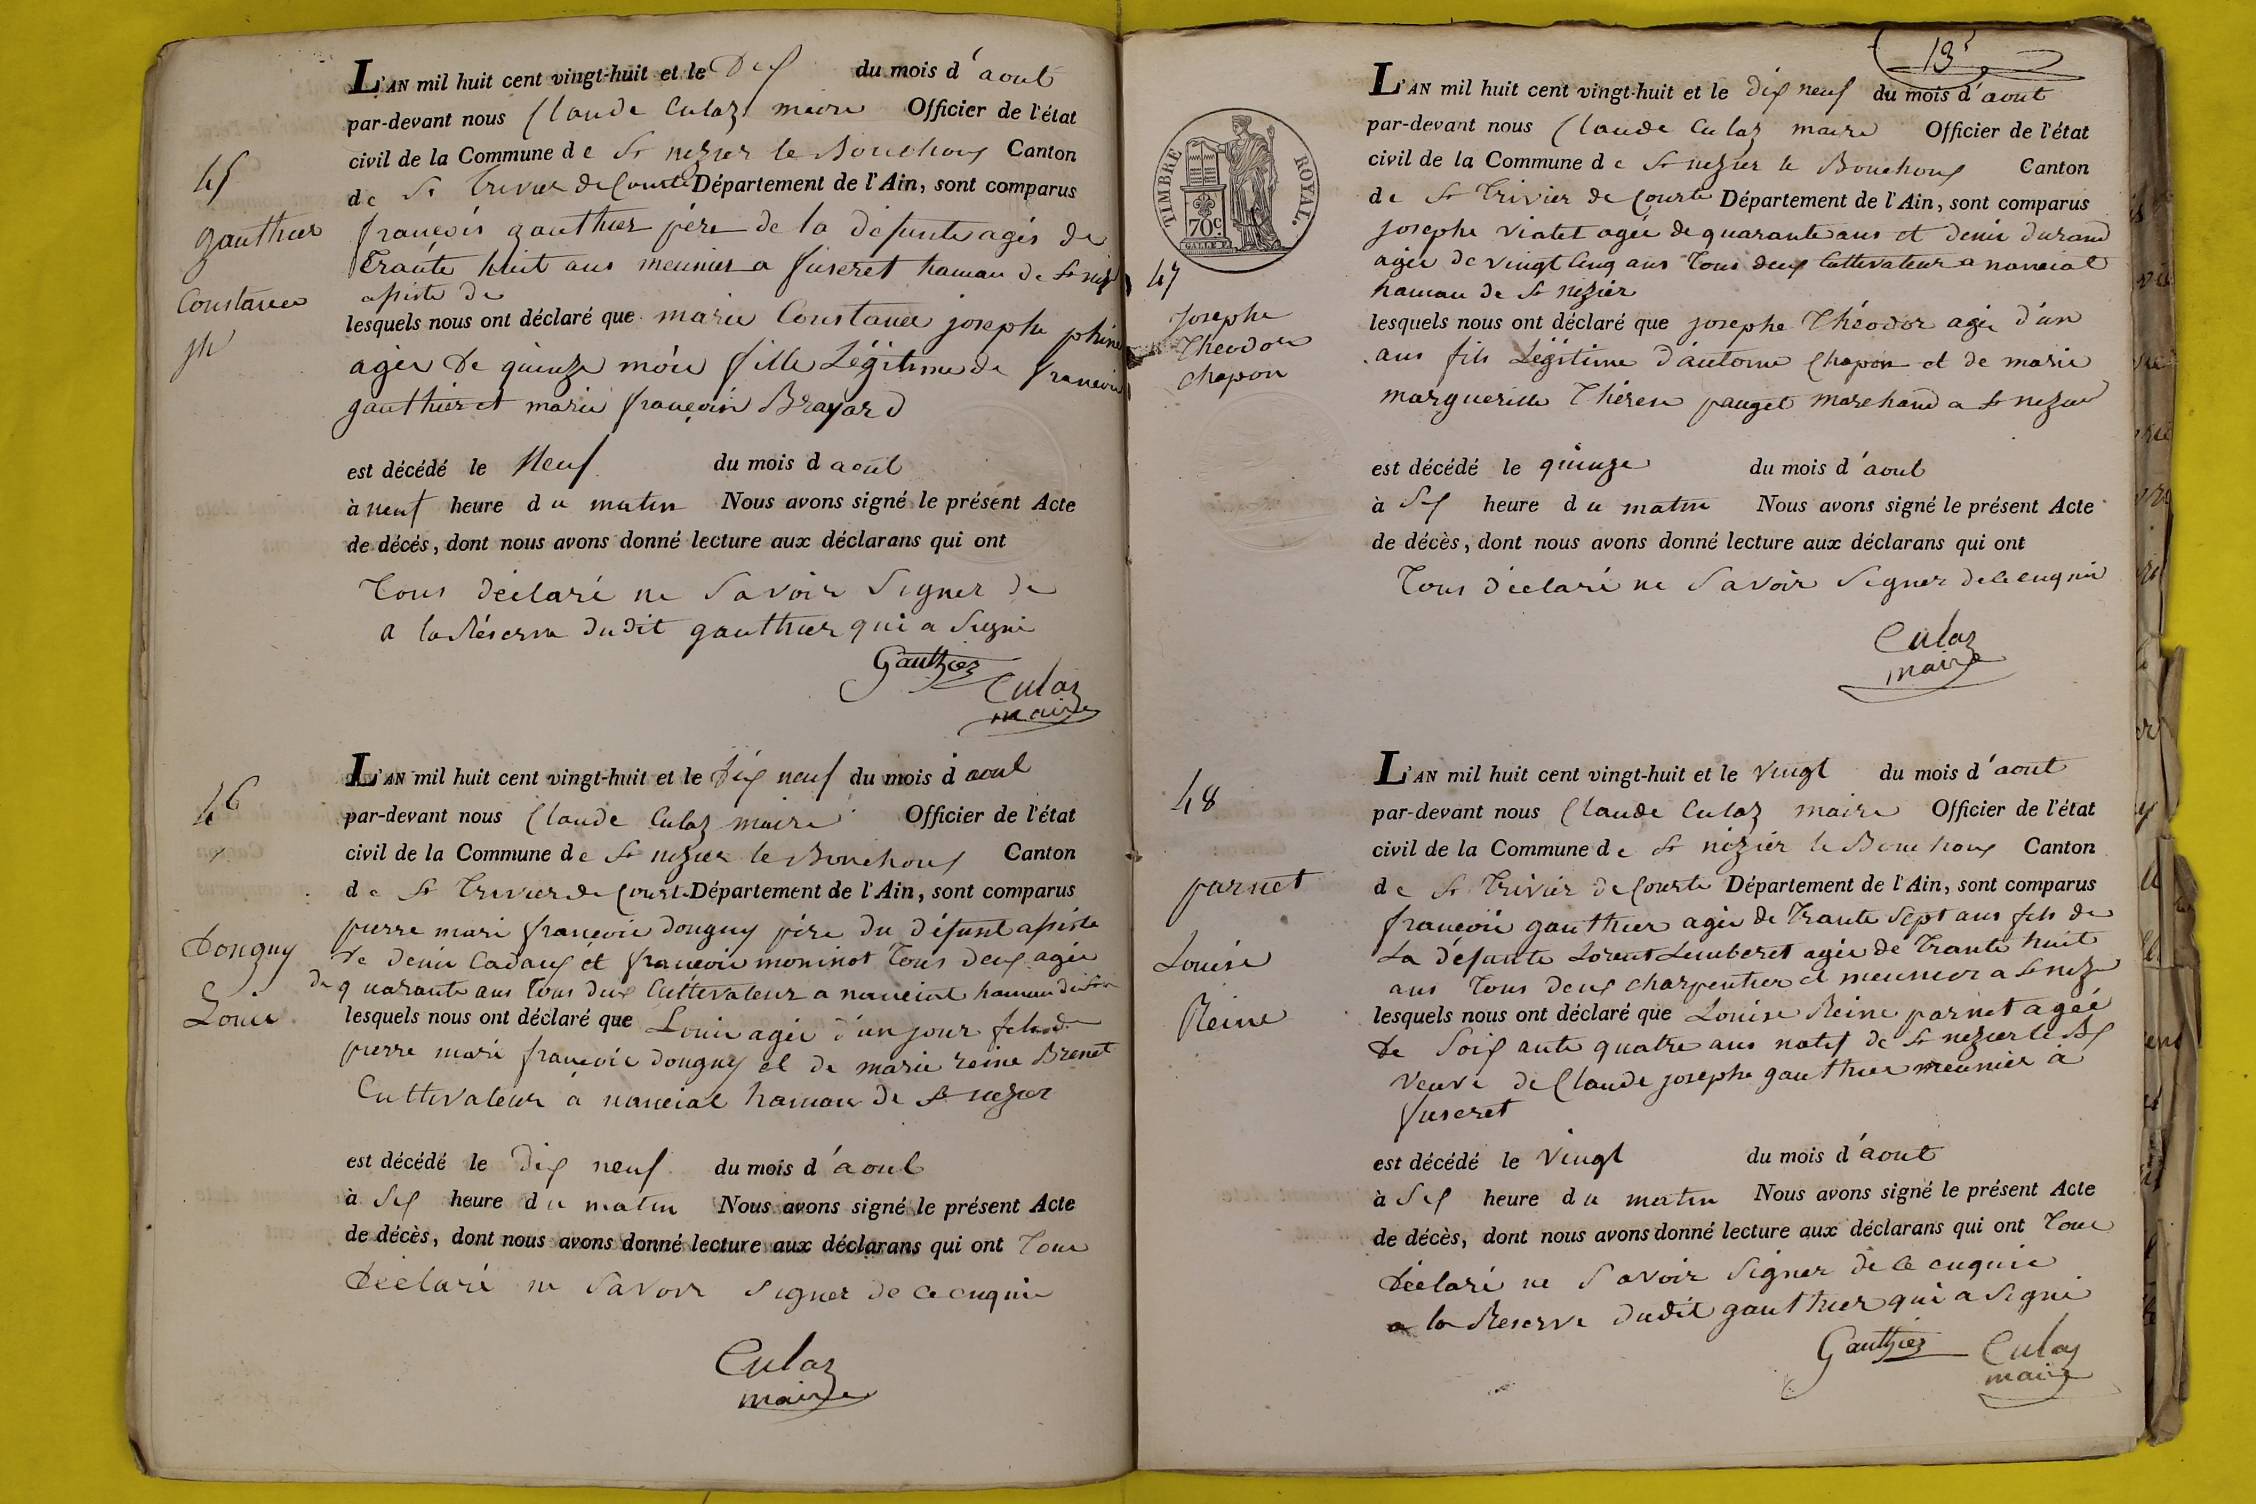 L'AN mil huit cent vingt-huit et le Dix du mois d'aout
par-devant nous Claude Culaz maire Officier de l'état
civil de la Commune de St nezier le Bouchoux Canton
de St Trivier de Courte Département de l'Ain, sont comparus
françois gauthier père de la défunte agés de
trante huit ans meunier a fuseret hamau de St nez
assiste de
lesquels nous ont déclaré que marie Constance josephe phine
agée de quinze mois fille Légitime de francois
gauthier et marie françoise Brayard
est décédé le Neuf du mois d aout
à neuf heure du matin Nous avons signé le présent Acte
de décés, dont nous avons donné lecture aux déclarans qui ont
tous déclaré ne Savoir Signer de
a la Réserve dudit gauthier qui a Signé
Gauthier
Culaz
maire
45
gauthier
Constance
jh
L'AN mil huit cent vingt-huit et le dix neuf du mois d aout
par-devant nous Claude Culaz maire Officier de l'état
civil de la Commune de St nezier le Bouchoux Canton
de St Trivier de Courte Département de l'Ain, sont comparus
pierre marie françois donguy père du défunt assiste
de denis Cadaux et françois moninot tous deux agée
de quarante ans tous deux Cultivateur a nancial hamau
lesquels nous ont déclaré que Louis agée d'un jour fils de
pierre marie françois donguy et de marie reine Brenet
Cultivateur a nancial hamau de St nezier
est décédé le dix neuf du mois d'aout
à Six heure du matin Nous avons signé le présent Acte
de décès, dont nous avons donné lecture aux déclarans qui ont tous
déclaré ne Savoir Signer de ce enquis
Culaz
maire
46
Donguy
Louis
13
TIMBRE ROYAL.
70c
L'AN mil huit cent vingt-huit et le dix neuf du mois d'aout
par-devant nous Claude Culaz maire Officier de l'état
civil de la Commune de St nezier le Bouchoux Canton
de St Trivier de Courte Département de l'Ain, sont comparus
josephe viatet agée de quarante ans et denis durand
agée de vingt Cinq ans tous deux Cultivateur a nancial
hamau de St nezier
lesquels nous ont déclaré que josephe Théodor agée d'un
ans fils Légitime d'antoine Chapon et de marie
margueritte Thérese pauget marchand a St nezier
est décédé le quinze du mois d'aout
à Six heure du matin Nous avons signé le présent Acte
de décès, dont nous avons donné lecture aux déclarans qui ont
tous déclaré ne Savoir Signer de ce enquis
Culaz
maire
47
Josephe
Theodor
Chapon
L'AN mil huit cent vingt-huit et le vingt du mois d'aout
par-devant nous Claude Culaz maire Officier de l'état
civil de la Commune de St nizier le Bouchoux Canton
de St Trivier de Courte Département de l'Ain, sont comparus
françois gauthier agée de trante Sept ans fils de
La défunte Lorent Luiberet agée de trante huit
ans tous deux charpentier et meunier a St nez
lesquels nous ont déclaré que Louise Reine parnet agée
de Soixante quatre ans natif de St nezier le Bx
veuve de Claude josephe gauthier meunier à
fuseret
est décédé le vingt du mois d'aout
à Six heure du matin Nous avons signé le présent Acte
de décès, dont nous avons donné lecture aux déclarans qui ont tous
déclaré ne Savoir Signer de ce enquis
a la Reserve dudit gauthier qui a Signé
Gauthier
Culaz
maire
48
parnet
Louise
Reine